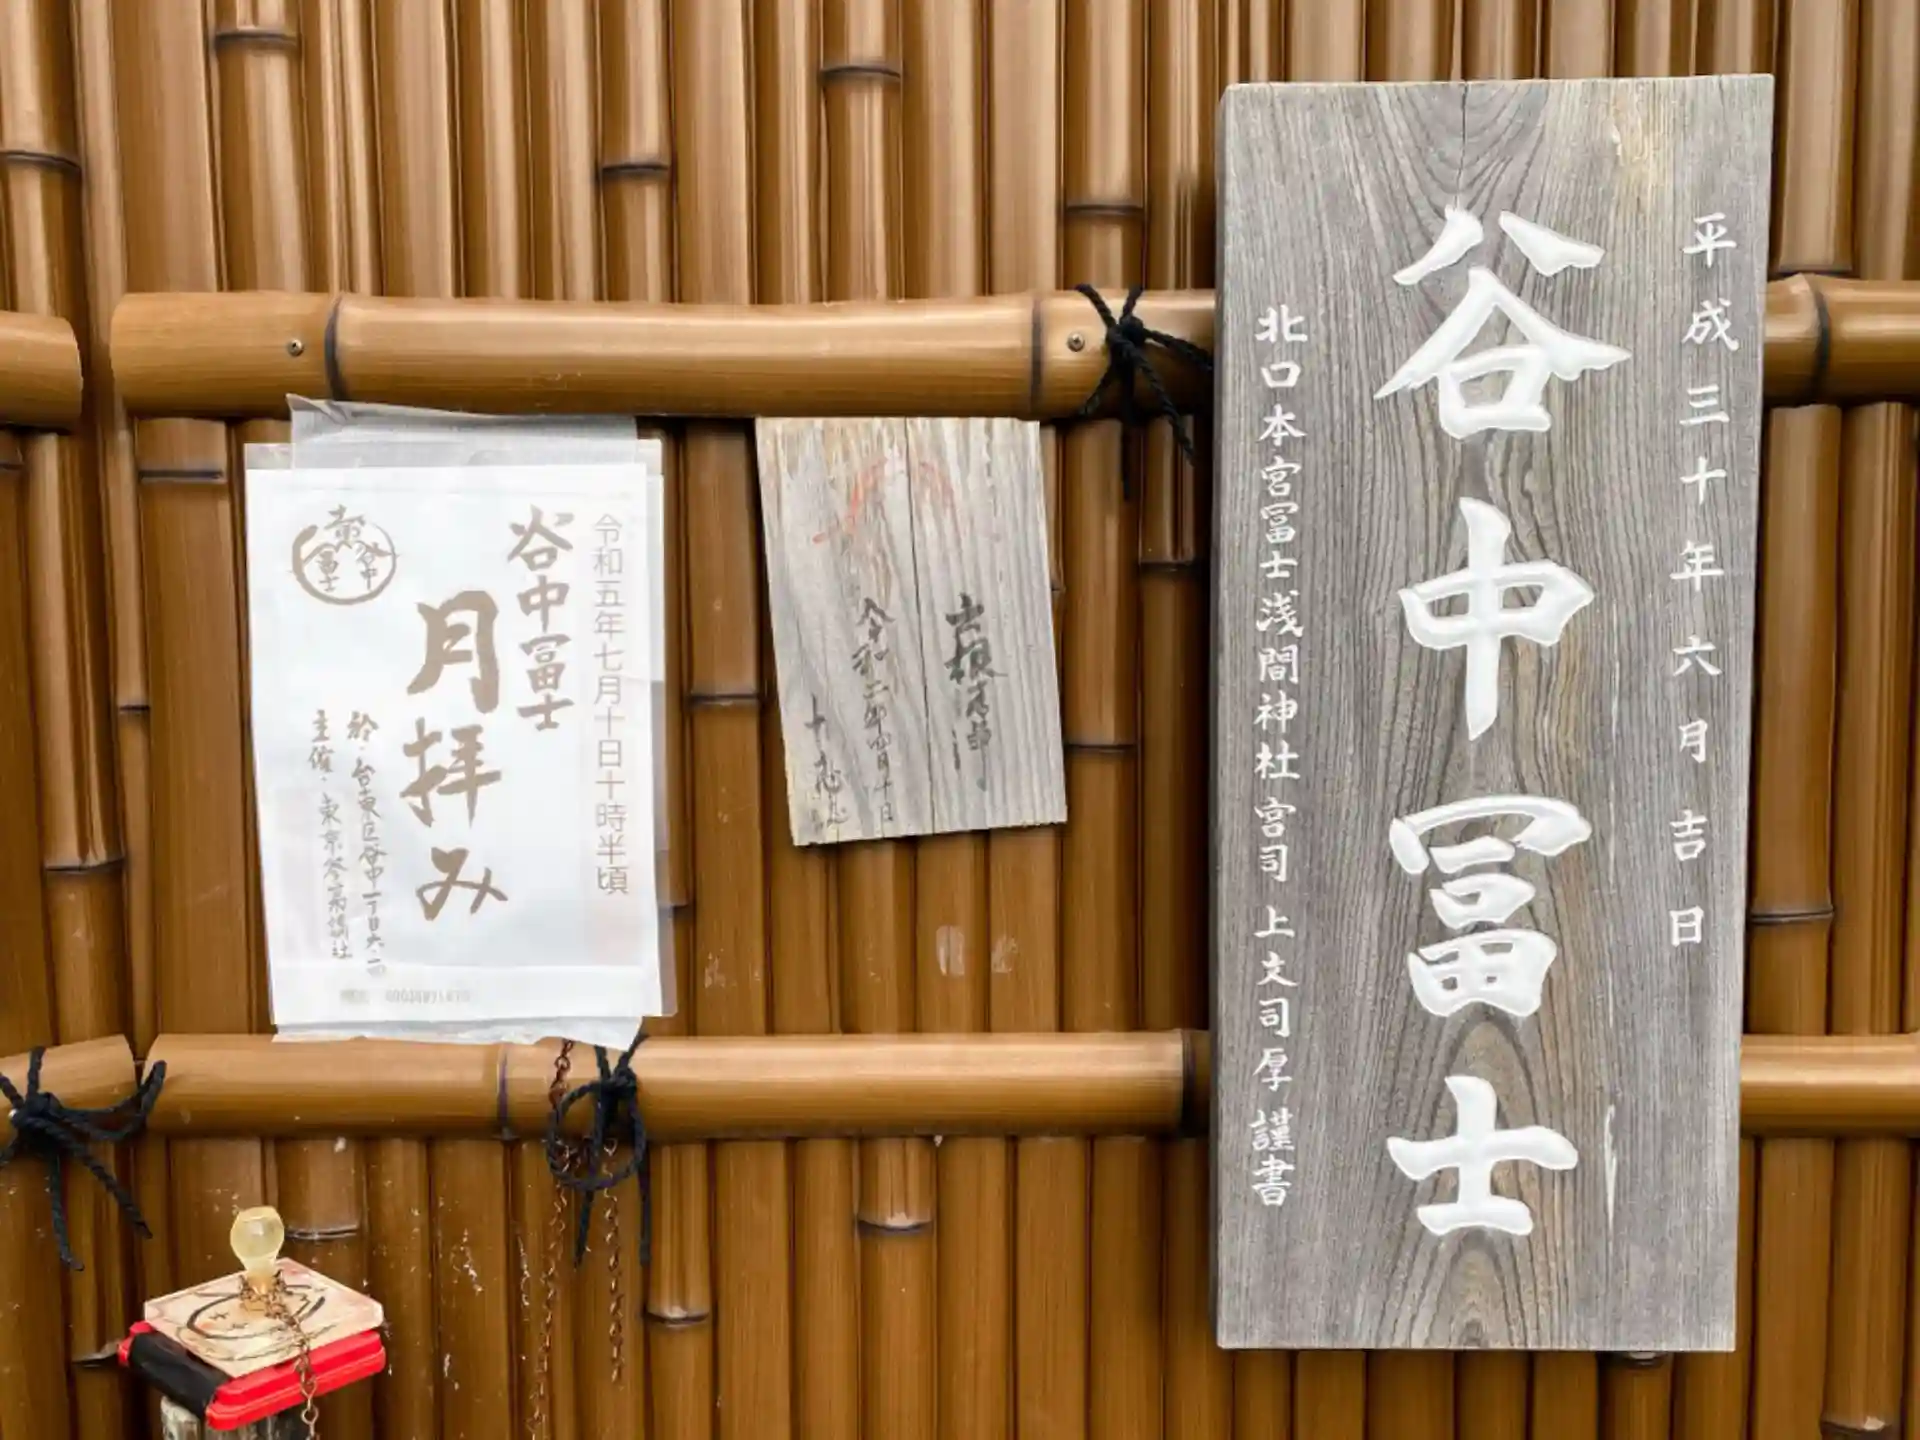 平成三十年六月吉日
谷中冨士
北口本宮冨士浅間神社 宮司 上文司 厚 謹書
令和二年四月十日
令和五年七月十日十時半頃
谷中冨士
月拝み
於・台東区谷中一丁目六・四
谷中
冨士